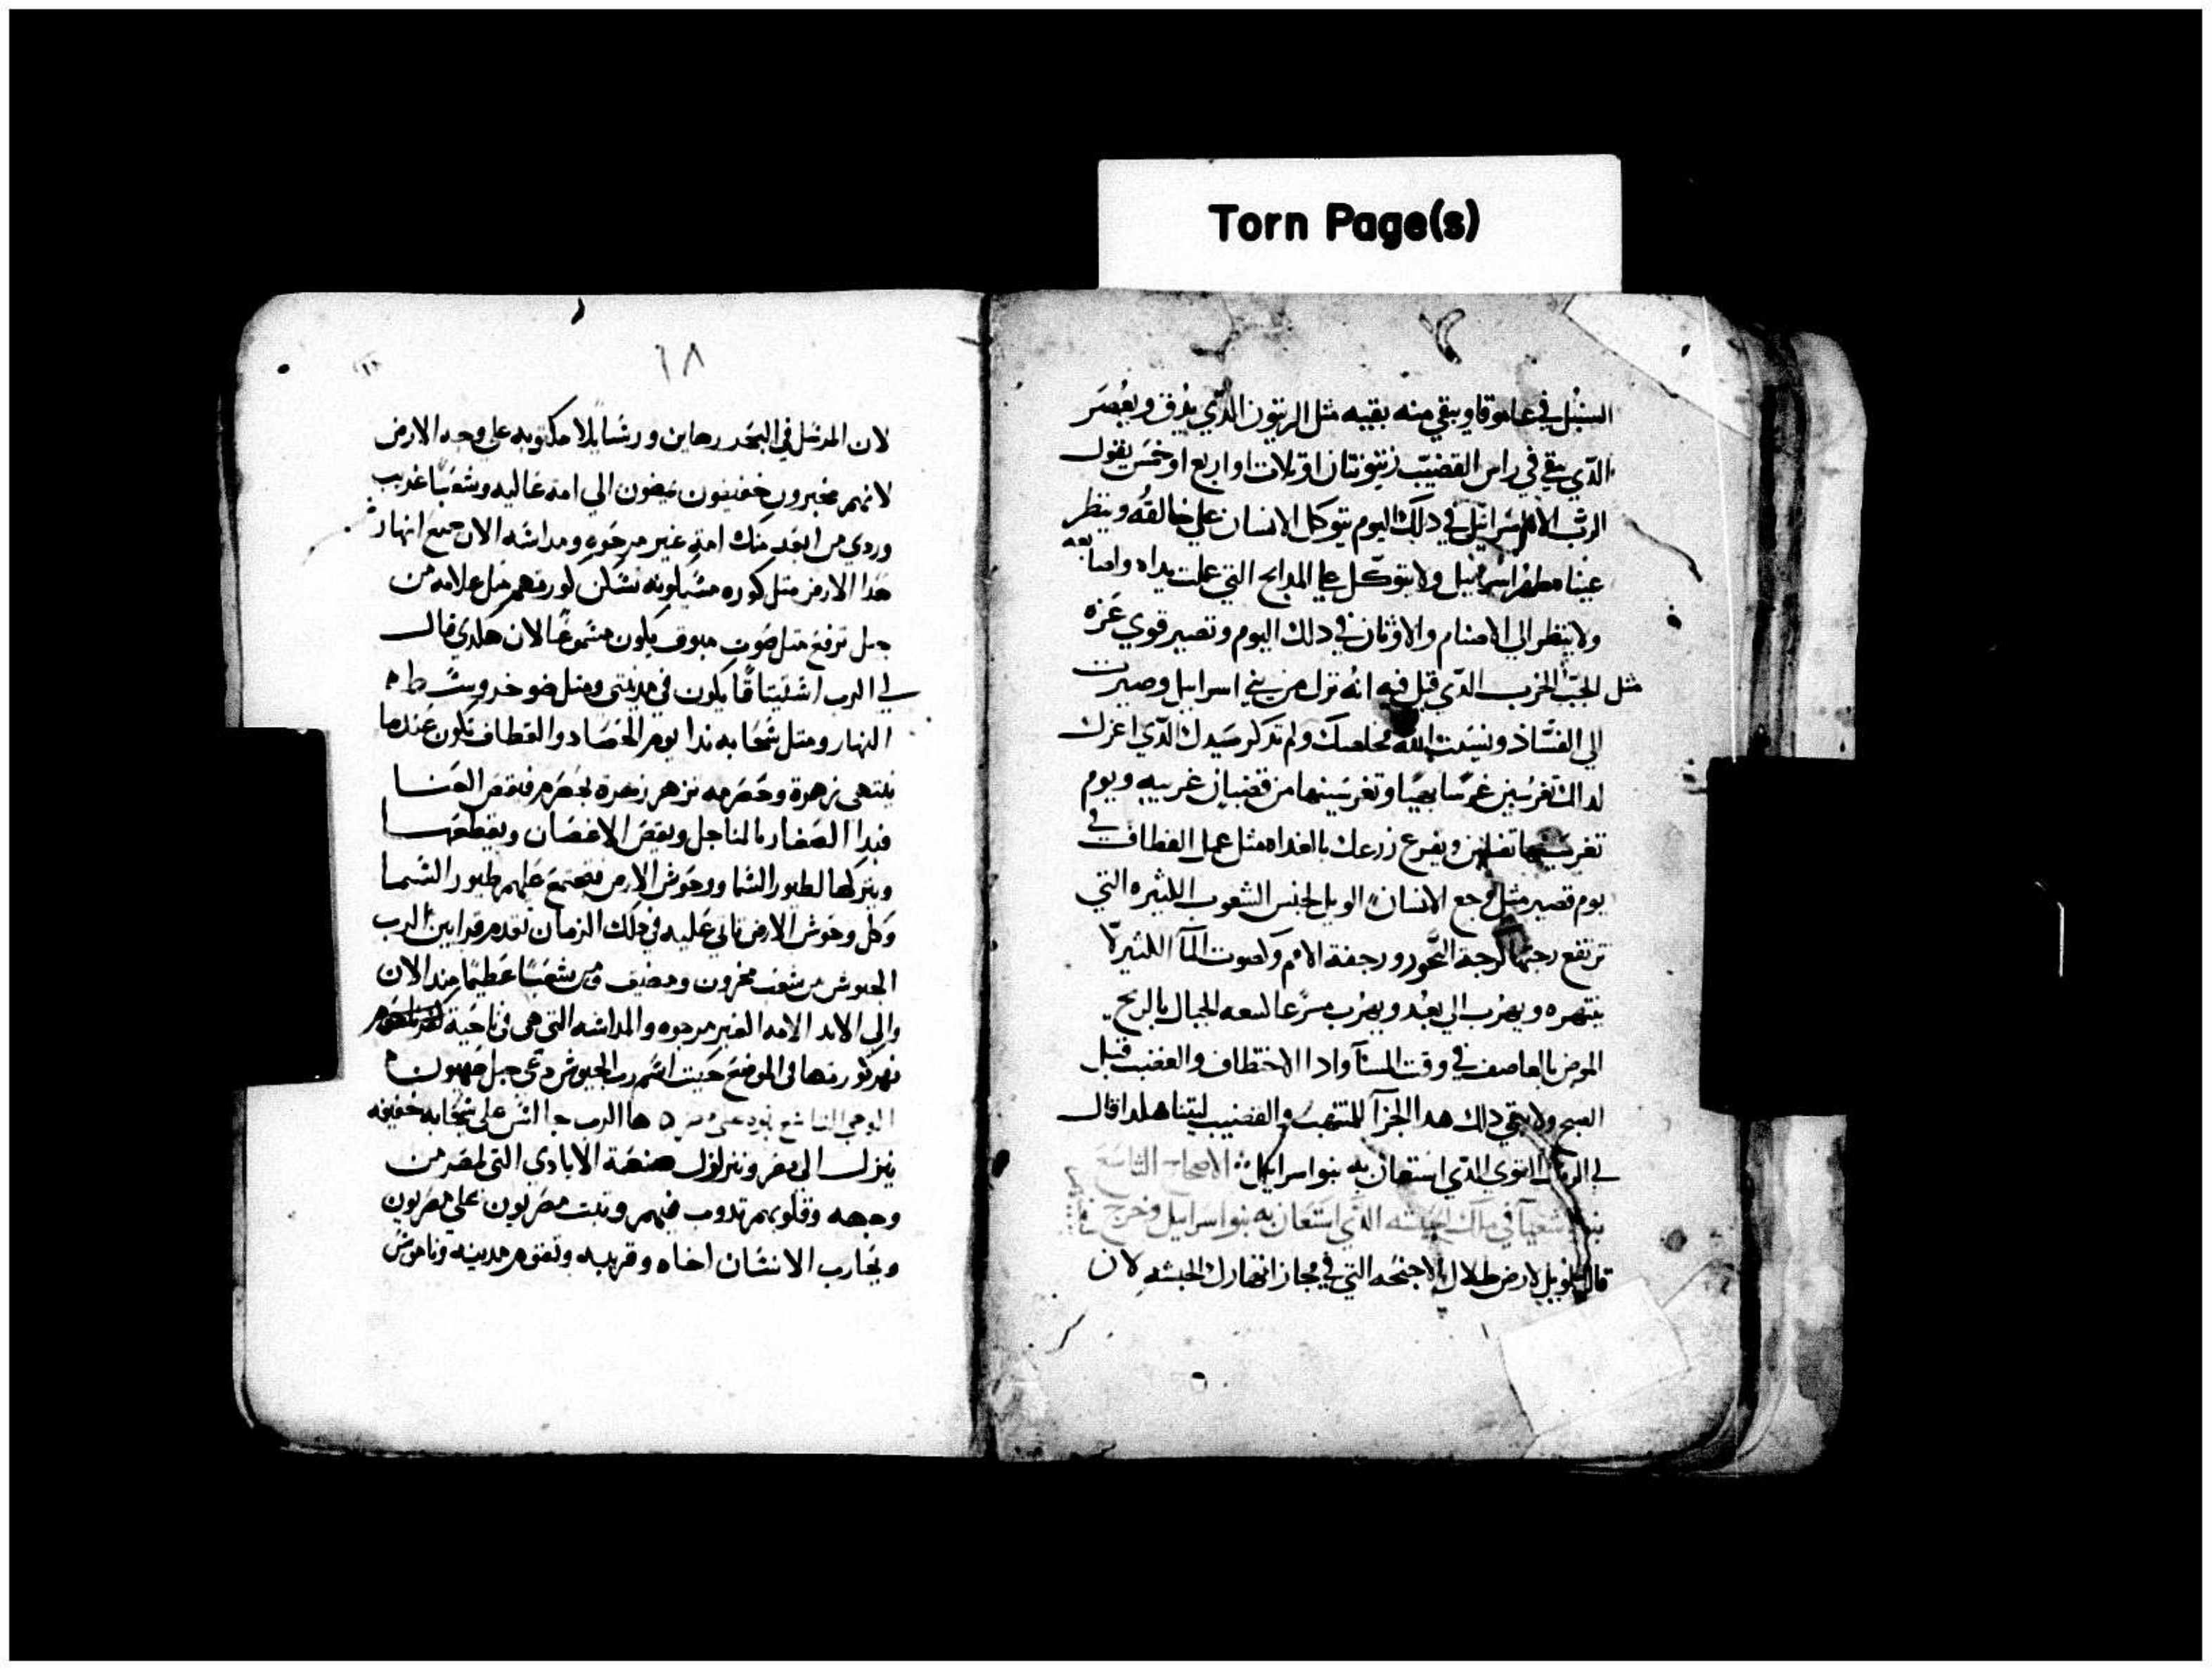 Torn Page(s)
السنبل في عاموقا ويبقي منه بقيه مثل الزيتون الدي يدق ويعصر
الدي يبقي في راس القضيب زيتونتان او تلات او اربع او خمس يقول
الرب الاه اسرائيل في دلك اليوم يتوكل الانسان علي خالقه وينظر
عينا مطهر اسرائيل ولا يتوكل علي المدابح التي عملت يداه واصابعه
ولا ينظر الي الاصنام والاوثان في دلك اليوم وتصير قوي عزه
مثل الجب الخرب الدي قيل فيه انه ترك من بني اسرايل وصيرت
الي الفساد ونسيت الله مخلصك ولم تدكر سيدك الدي اعزك
لداك تغرسين غرسا بهيا وتغرسينها من قضبان غريبه ويوم
تغرسينها ويفرع زرعك بالغداه مثل عمل القطاف في
يوم قصير مثل وجع الانسان الويل لجنس الشعوب الكثيره التي
ترتفع رجتها كرجة البحور ورجفة الامم وكصوت المآ الكثير لا
ينتهره ويهرب الي بعد ويهرب مسرعا الجبال بالريح
بالعاصف في وقت المسآ وادا الاختطاف والغضب قبل
الصبح ولا يبقي دلك هدا الجزآ للمنتهب والقضيب لبتنا هلدا قال
لي الرب القوي الدي استعان به بنو اسرايل الاصحاح التاسع
شعيا في ملك الحبشه الدي استعان به بنو اسراييل وخرج
قال الويل لارض ظلال الاجنحه التي في مجاز انهار الحبشه لان
١٨
لان المرسل في البحر رهاين ورسايلا مكتوبه علي وجه الارض
لانهم مخبرون خفيفون يمضون الي امه عاليه وشعبا غريب
وردي من ابعد منك امه غير مرجوه ومداسه الان جميع انهار
هدا الارض مثل كوره مسكونه تسكن كورتهم مثل علامه من
جبل ترفع مثل صوت مبوق يكون مسموعا لان هكدي قال
لي الرب اشتيتاقا يكون في مدينتي ومثل ضو حر وسط
النهار ومثل سحابه ندا يوم الحصاد والقطاف تكون عندما
ينتهي زهرة وحصرمه تزهر زهرة بحصرم فيقص العنا
قيدا الصغار بالمناجل ويقص الاغصان ويقطعها
ويتركها لطيور السما ووحوش الارض فيجتمع عليهم طيور السما
وكل وحوش الارض تاتي عليه في دلك الزمان تقدم قرابين الرب
الجيوش من شعب محزون وضعيف ومن شعبا عظيما مند الان
والي الابد الامه الغير مرجوه والمداسه التي هي في ناحية
نهر كورتها في الموضع حيت اسم رب الجيوش دعي جبل صهيون
الوحي التاسع نبوه علي مصر ها الرب جالس علي سحابه خفيفه
ينزل الي مصر وتتزلزل صنعة الايادي التي لمصر من
وجهه وقلوبهم تدوب فيهم وتبت مصريون علي مصريون
ويحارب الانسان اخاه وقريبه وتقوم مدينه وناموس